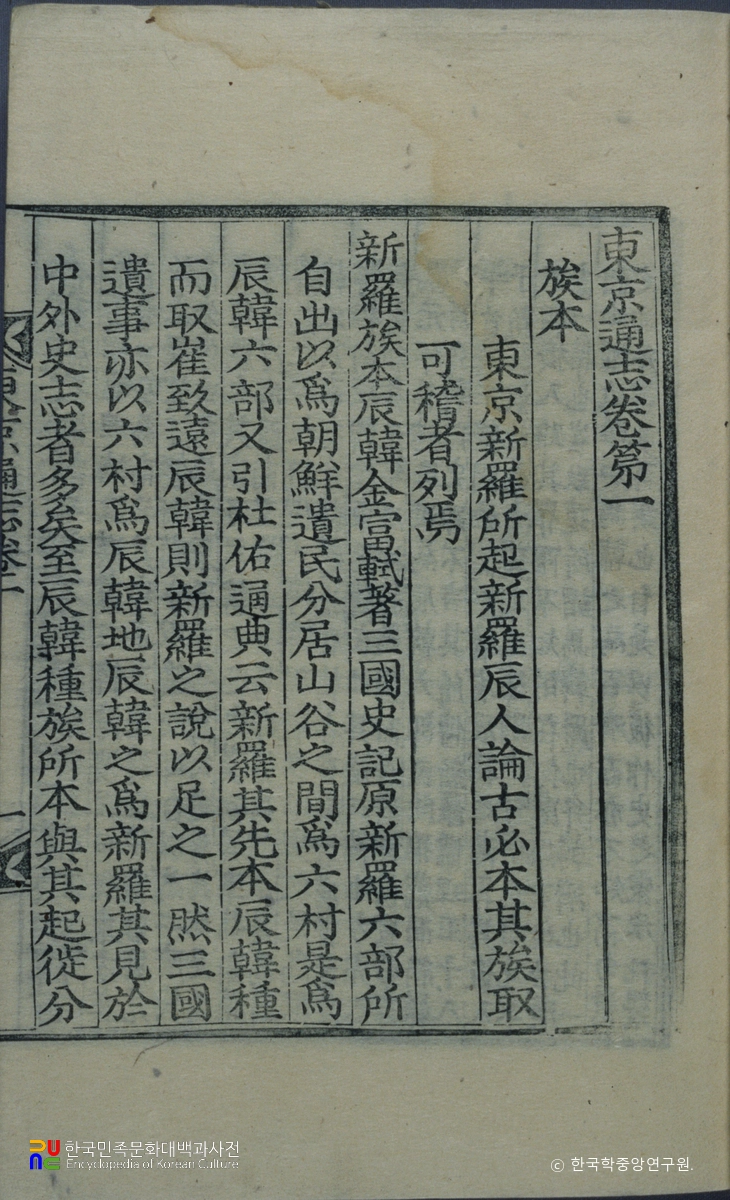 東京通志卷第一
族本
東京新羅所起新羅辰人論古必本其族取
可稽者列焉
新羅族本辰韓金富軾著三國史記原新羅六部所
自出以爲朝鮮遺民分居山谷之間爲六村是爲
辰韓六部又引杜佑通典云新羅其先本辰韓種
而取崔致遠辰韓則新羅之說以足之一然三國
遺事亦以六村爲辰韓地辰韓之爲新羅其見於
中外史志者多矣至辰韓種族所本與其起徙分
東京通志卷一
一
한국민족문화대백과사전
Encyclopedia of Korean Culture
© 한국학중앙연구원.